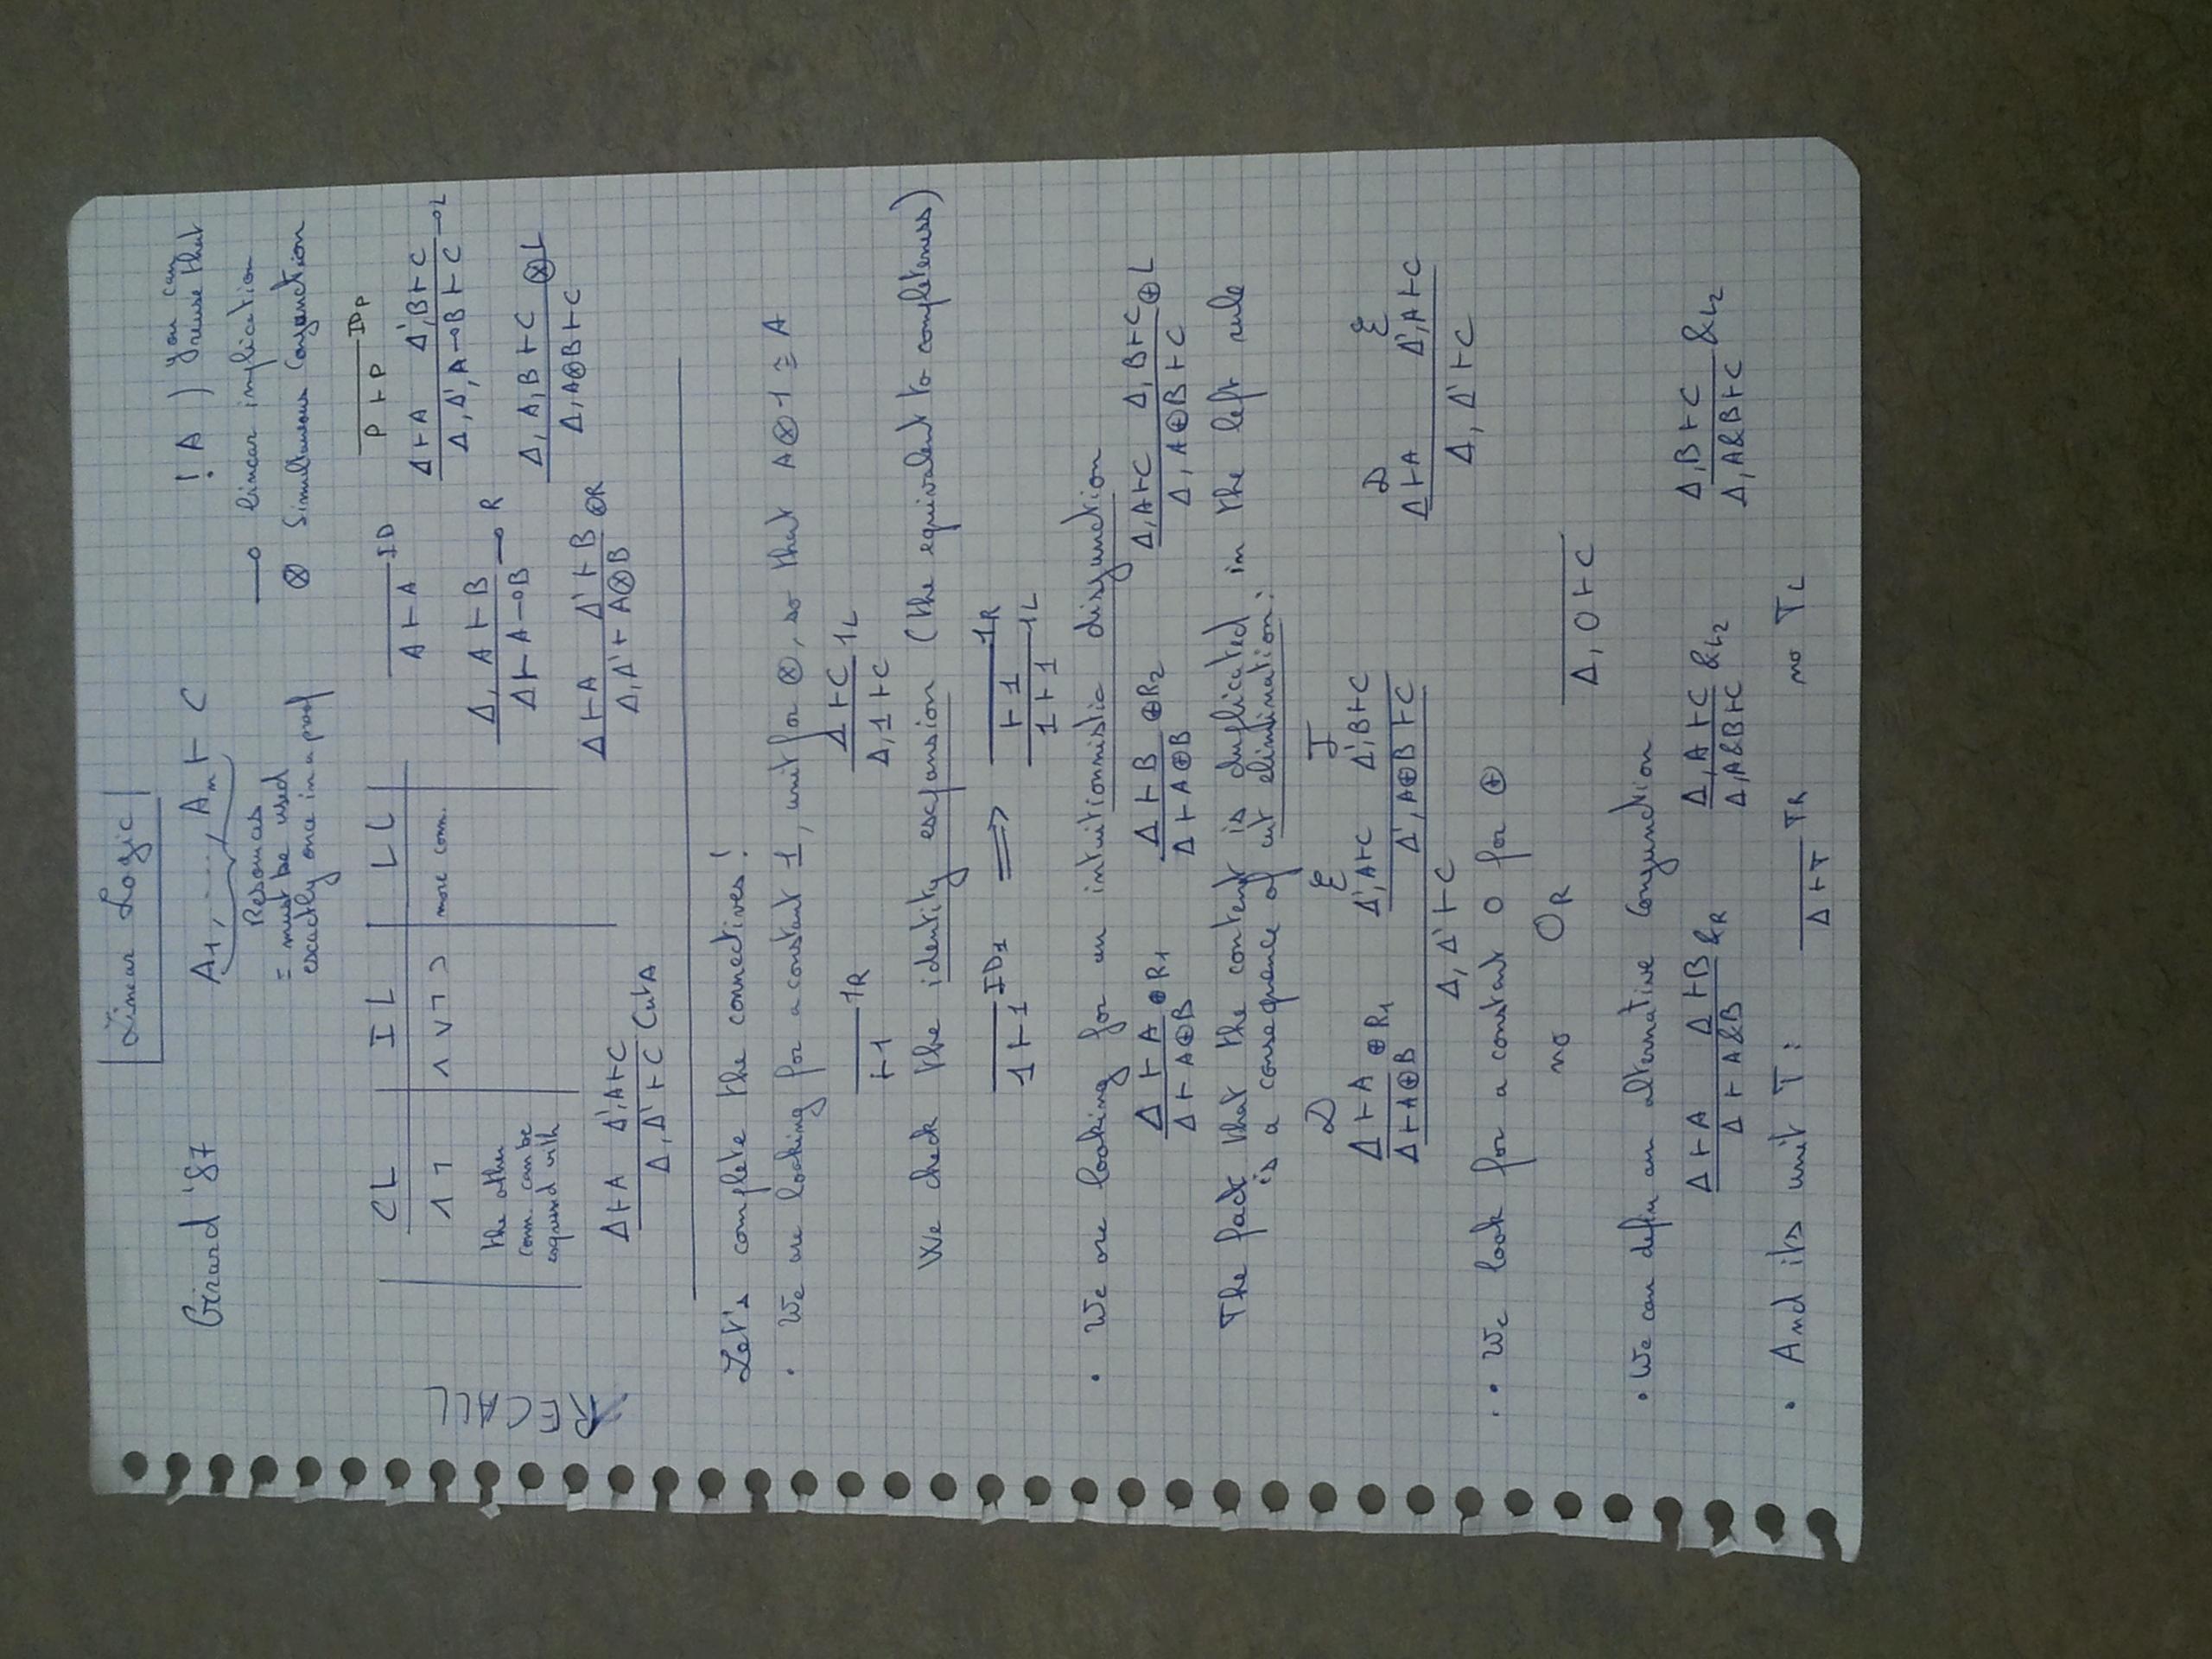 Linear Logic
Girard '87 A1, ..., An ⊢ C ! A ) you can reuse that
Resources
= must be used
exactly once in a proof
⊸ linear implication
⊗ Simultaneous Conjunction
RECALL
CL | IL | LL
∧ ¬ | ∧ ∨ ¬ ⊃ | more conn.
the other
conn. can be
with
A ⊢ A ID
P ⊢ P IDP
Δ, A ⊢ B
Δ ⊢ A ⊸ B ⊸R
Δ ⊢ A Δ', B ⊢ C
Δ, Δ', A ⊸ B ⊢ C ⊸L
Δ ⊢ A Δ', A ⊢ C
Δ, Δ' ⊢ C Cut A
Δ ⊢ A Δ' ⊢ B ⊗R
Δ, Δ' ⊢ A⊗B
Δ, A, B ⊢ C ⊗L
Δ, A⊗B ⊢ C
Let's complete the connectives!
• We are looking for a constant 1, unit for ⊗, so that A⊗1 ≅ A
⊢ 1 1R
Δ ⊢ C 1L
Δ, 1 ⊢ C
We check the identity expansion (the equivalent to completeness)
1 ⊢ 1 ID1 ⟹ ⊢ 1 1R
1 ⊢ 1 1L
• We are looking for an intuitionnistic disjunction
Δ ⊢ A ⊕R1 Δ ⊢ B ⊕R2 Δ, A ⊢ C Δ, B ⊢ C ⊕L
Δ ⊢ A⊕B Δ ⊢ A⊕B Δ, A⊕B ⊢ C
The fact that the context is duplicated in the left rule
is a consequence of cut elimination:
D E F D E
Δ ⊢ A ⊕R1 Δ', A ⊢ C Δ', B ⊢ C Δ ⊢ A Δ', A ⊢ C
Δ ⊢ A⊕B Δ', A⊕B ⊢ C Δ, Δ' ⊢ C
Δ, Δ' ⊢ C
• • We look for a constant 0 for ⊕
no 0R Δ, 0 ⊢ C
• We can define an alternative conjunction
Δ ⊢ A Δ ⊢ B &R Δ, A ⊢ C &L2 Δ, B ⊢ C &L2
Δ ⊢ A&B Δ, A&B ⊢ C Δ, A&B ⊢ C
• And its unit T: Δ ⊢ T TR no TL